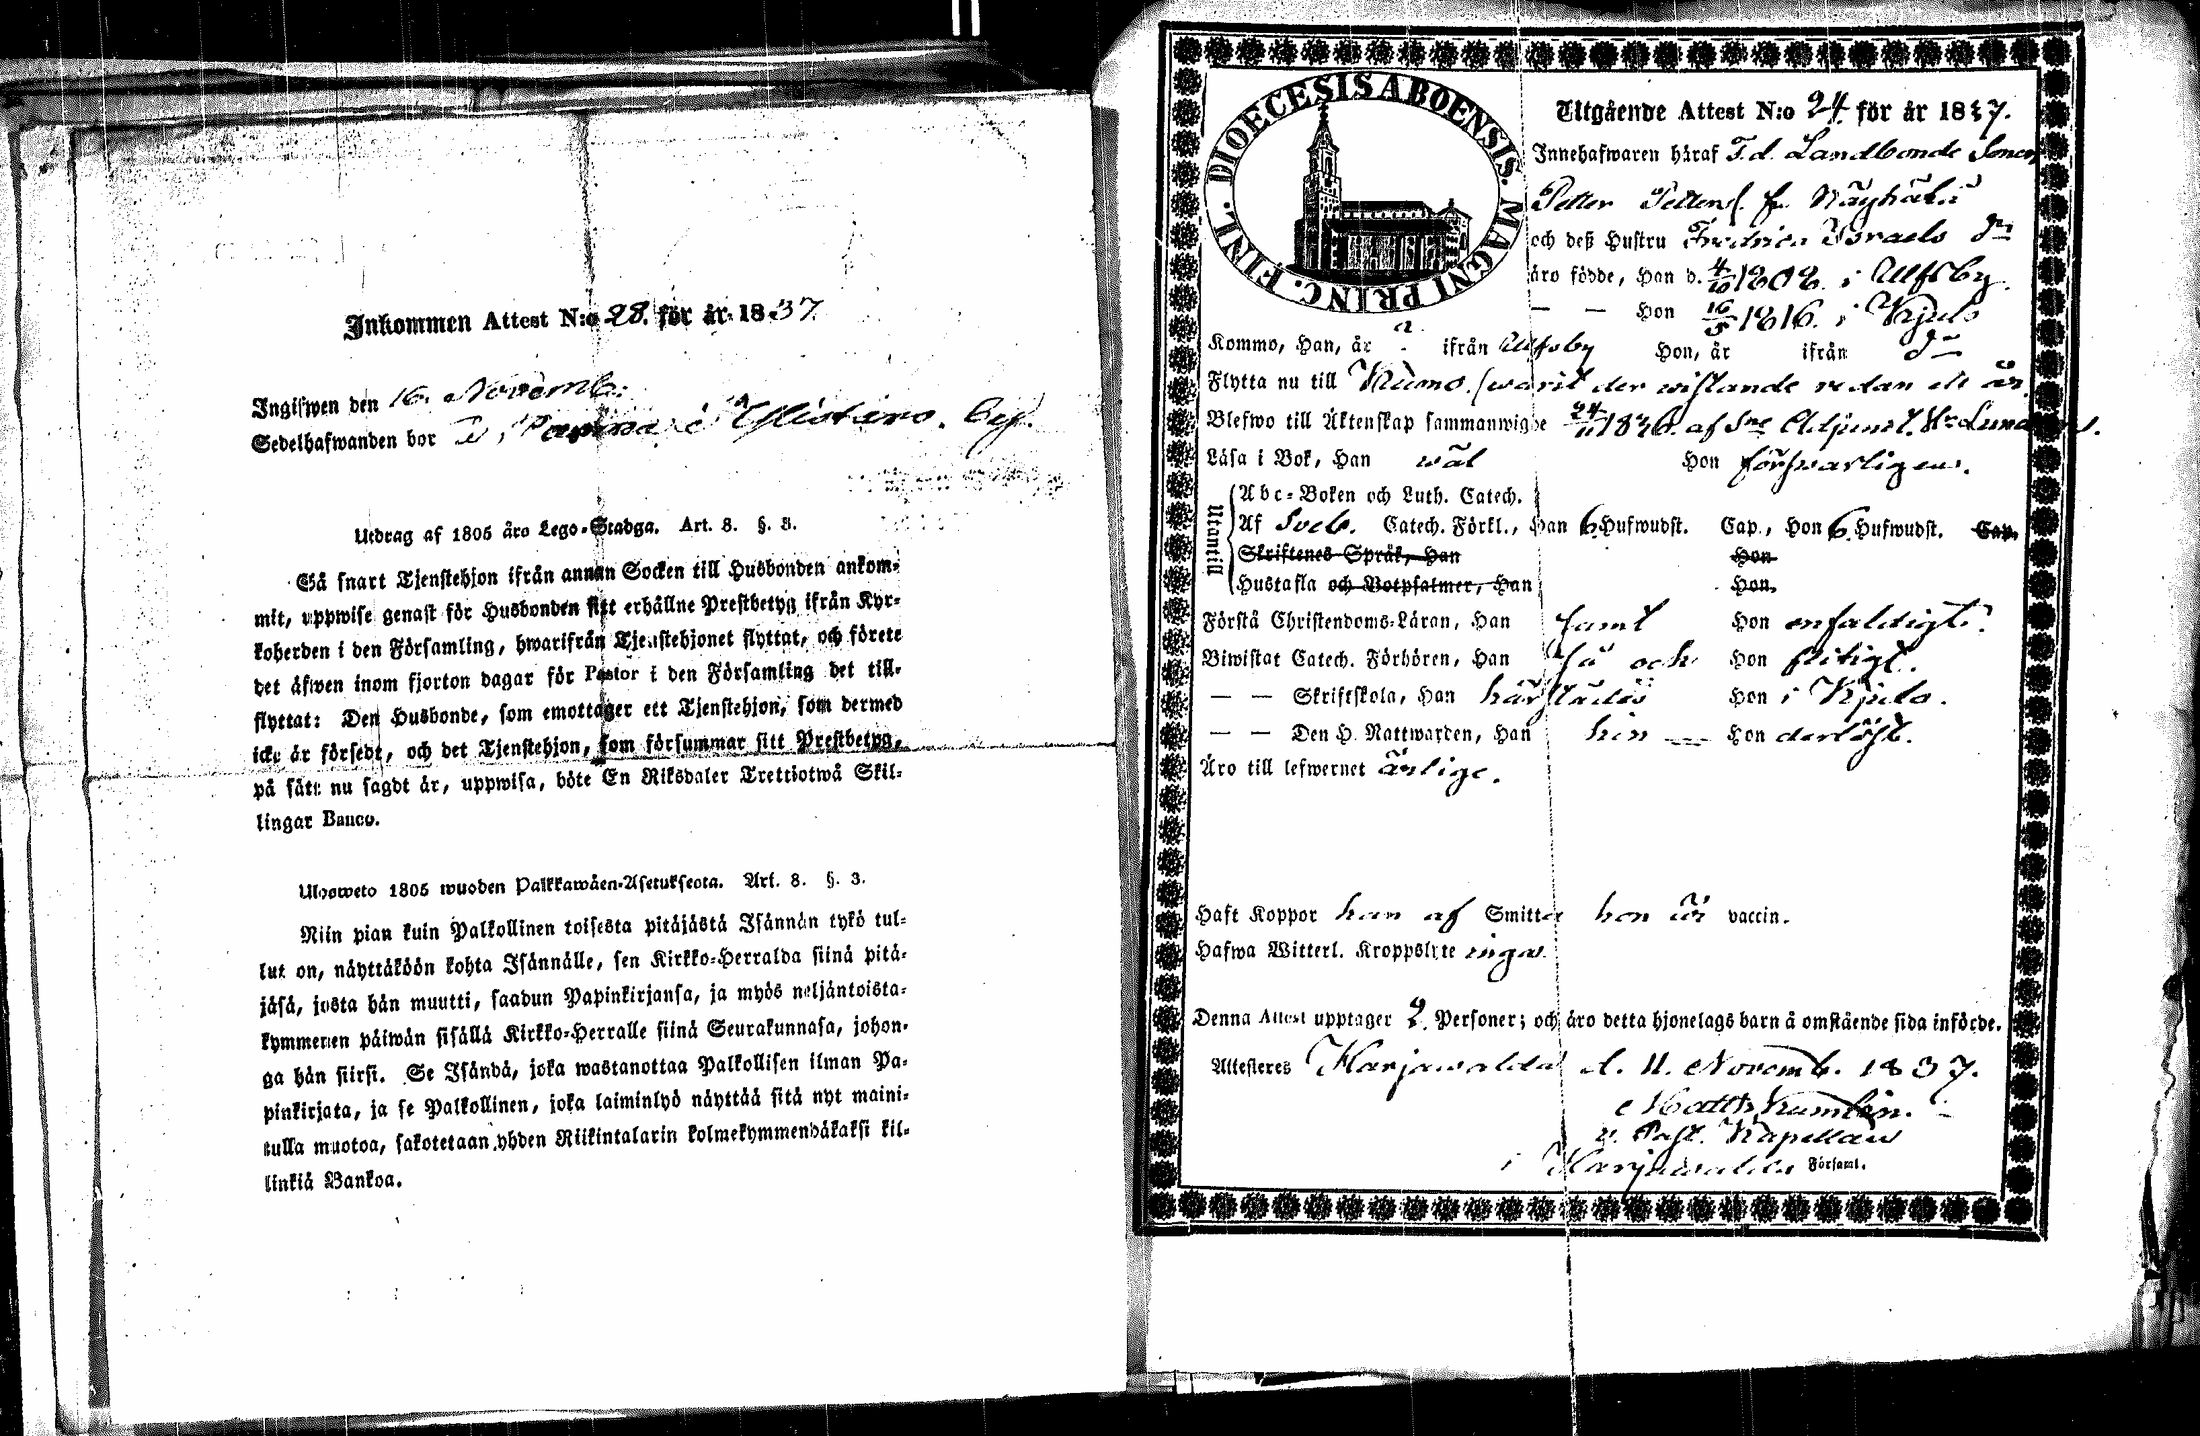 Inkommen Attest N:o 28. för år 1837.
Ingifwen den 16. Novemb:
Sedelhafwanden bor
Utdrag af 1805 års Lego-Stadga. Art. 8. §. 3.
Så snart Tjenstehjon ifrån annan Socken till Husbonden ankom-
mit, uppwise genast för Husbonden sitt erhållne Prestbetyg ifrån Kyr-
koherden i den Församling, hwarifrån Tjenstehjonet flyttat, och förete
det äfwen inom fjorton dagar för Pastor i den Församling det till-
flyttat: Den Husbonde, som emottager ett Tjenstehjon, som dermed
icke är försedt, och det Tjenstehjon, som försummar sitt Prestbetyg,
på sätt nu sagdt är, uppwisa, böte En Riksdaler Trettiotwå Skil-
lingar Banco.
Ulosweto 1805 wuoden Palkkawäen-Asetuksesta. Art. 8. §. 3.
Niin pian kuin Palkollinen toisesta pitäjästä Isännän tykö tul-
lut on, näyttäköön kohta Isännälle, sen Kirkko-Herralda siinä pitä-
jäsä, josta hän muutti, saadun Papinkirjansa, ja myös neljäntoista-
kymmenen päiwän sisällä Kirkko-Herralle siinä Seurakunnasa, johon-
ga hän siirsi. Se Isändä, joka wastanottaa Palkollisen ilman Pa-
pinkirjata, ja se Palkollinen, joka laiminlyö näyttää sitä nyt maini-
tulla muotoa, sakotetaan yhden Riikintalarin kolmekymmendäkaksi kil-
linkiä Bankoa.
DIOECESIS ABOENSIS. MAGNI PRINC. FINL.
Utgående Attest N:o 24. för år 1837.
Innehafwaren häraf F.d. Landbonde Sonen
Petter Petters. fr.
och deß Hustru Fredrica Israels dr
äro födde, Han d. 4/10 1808. i Ulfsby.
— — Hon 16/5 1816. i Kjulo
Kommo, Han, år ? ifrån Ulfsby Hon, år ifrån do
Flytta nu till Kumo. (warit der wistande redan ett år.
Blefwo till Äktenskap sammanwigde 24/11 1836. af Adjunct. Hr
Läsa i Bok, Han wäl Hon förswarligen.
Utantill
Abc-Boken och Luth. Catech.
Af Sveb. Catech. Förkl., Han 6 Hufwudst. Cap., Hon 6. Hufwudst. Cap.
Skriftenes Språk, Han Hon
Hustafla och Botpsalmer, Han Hon.
Förstå Christendoms-Läran, Han samt Hon enfaldigt.
Biwistat Catech. Förhören, Han så och Hon flitigt.
— — Skriftskola, Han härstädes Hon i Kjulo.
— — Den H. Nattwarden, Han hin — Hon derlöst.
Äro till lefwernet ärlige.
Haft Koppor han af Smitter hon är vaccin.
Hafwa Witterl. Kroppslyte inga.
Denna Attest upptager 2. Personer; och äro detta hjonelags barn å omstående sida införde.
Attesteres Harjawalda d. 11. Novemb. 1837.
Matth Kumlén.
v. Past. Kapellan
i Harjawalda Församl.